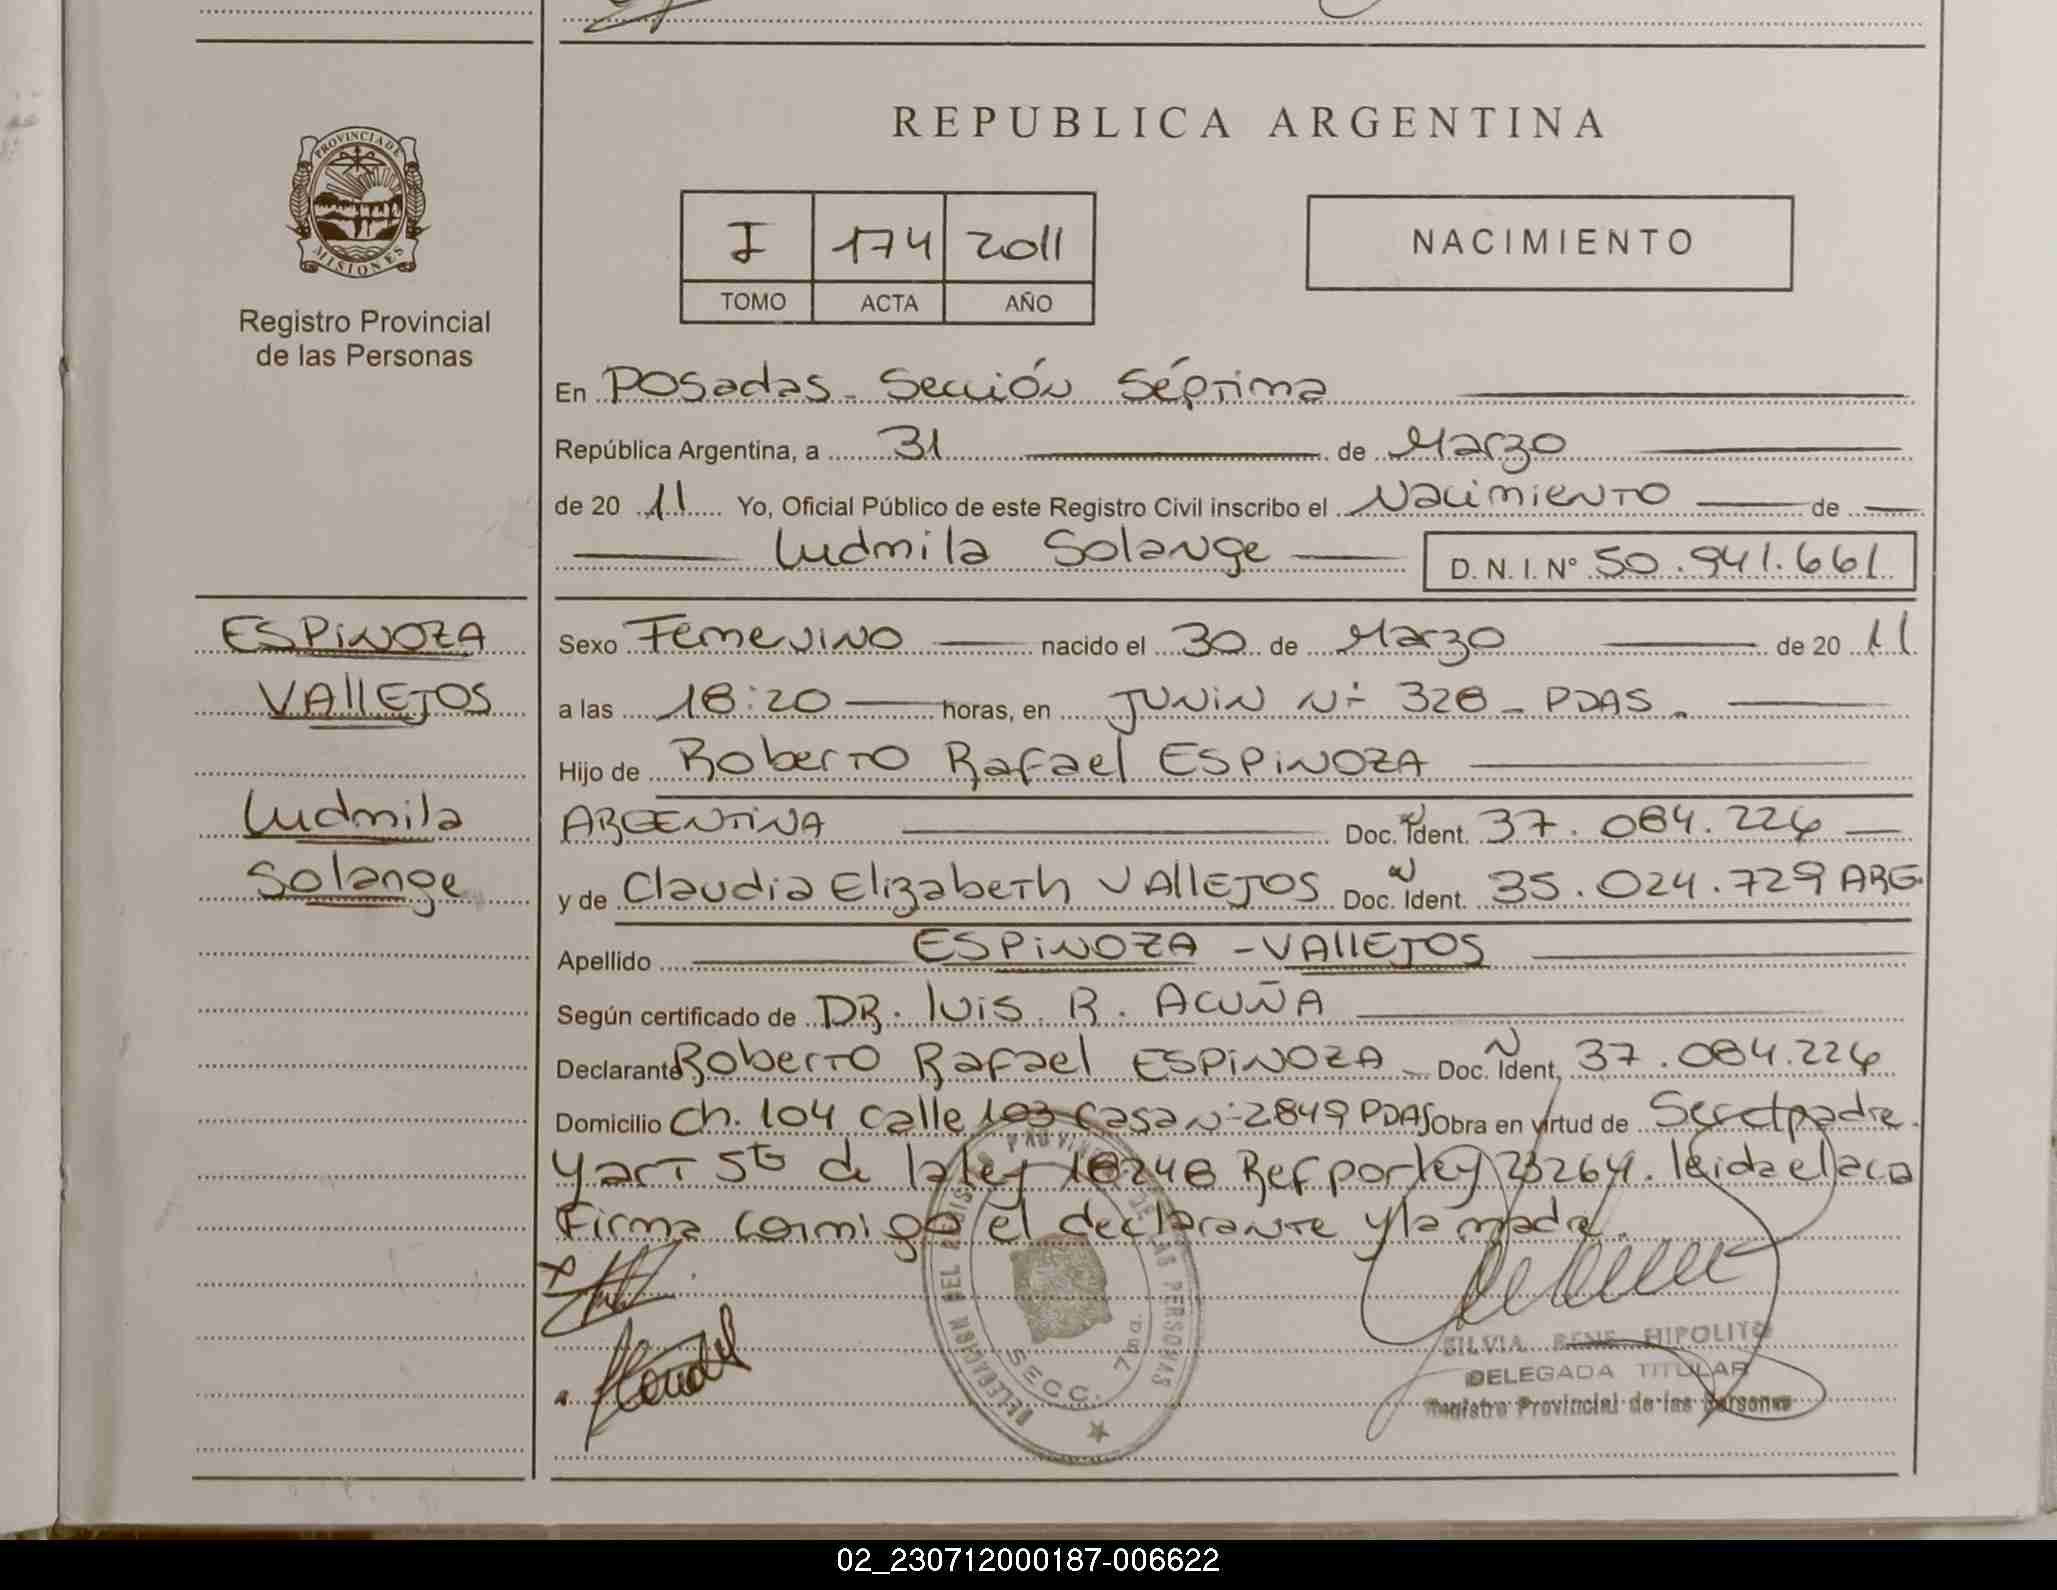 PROVINCIA DE
MISIONES
Registro Provincial
de las Personas
ESPINOZA
VALLEJOS
Ludmila
Solange
REPUBLICA ARGENTINA
I 174 2011
TOMO ACTA AÑO
NACIMIENTO
En Posadas - Sección Séptima
República Argentina, a 31 de Marzo
de 20 11 Yo, Oficial Público de este Registro Civil inscribo el Nacimiento de
Ludmila Solange D. N. I. N° 50.941.661
Sexo Femenino nacido el 30 de Marzo de 20 11
a las 18:20 horas, en JUNIN N° 328 - PDAS.
Hijo de Roberto Rafael ESPINOZA
ARGENTINA Doc. Ident. 37.084.224
y de Claudia Elizabeth VALLEJOS Doc. Ident. 35.024.729 ARG.
Apellido ESPINOZA - VALLEJOS
Según certificado de DR. Luis R. ACUÑA
Declarante Roberto Rafael ESPINOZA Doc. Ident. 37.084.224
Domicilio Ch. 104 Calle 103 Casa N° 2849 PDAS Obra en virtud de padre
y art 5to de la ley 18248 Ref por ley 23264. leida el acta
Firma conmigo el declarante y la madre.
DELEGACION DEL REGISTRO PROVINCIAL DE LAS PERSONAS
SECC. 7ma.
SILVIA RENE HIPOLITO
DELEGADA TITULAR
Registro Provincial de las Personas
02_230712000187-006622